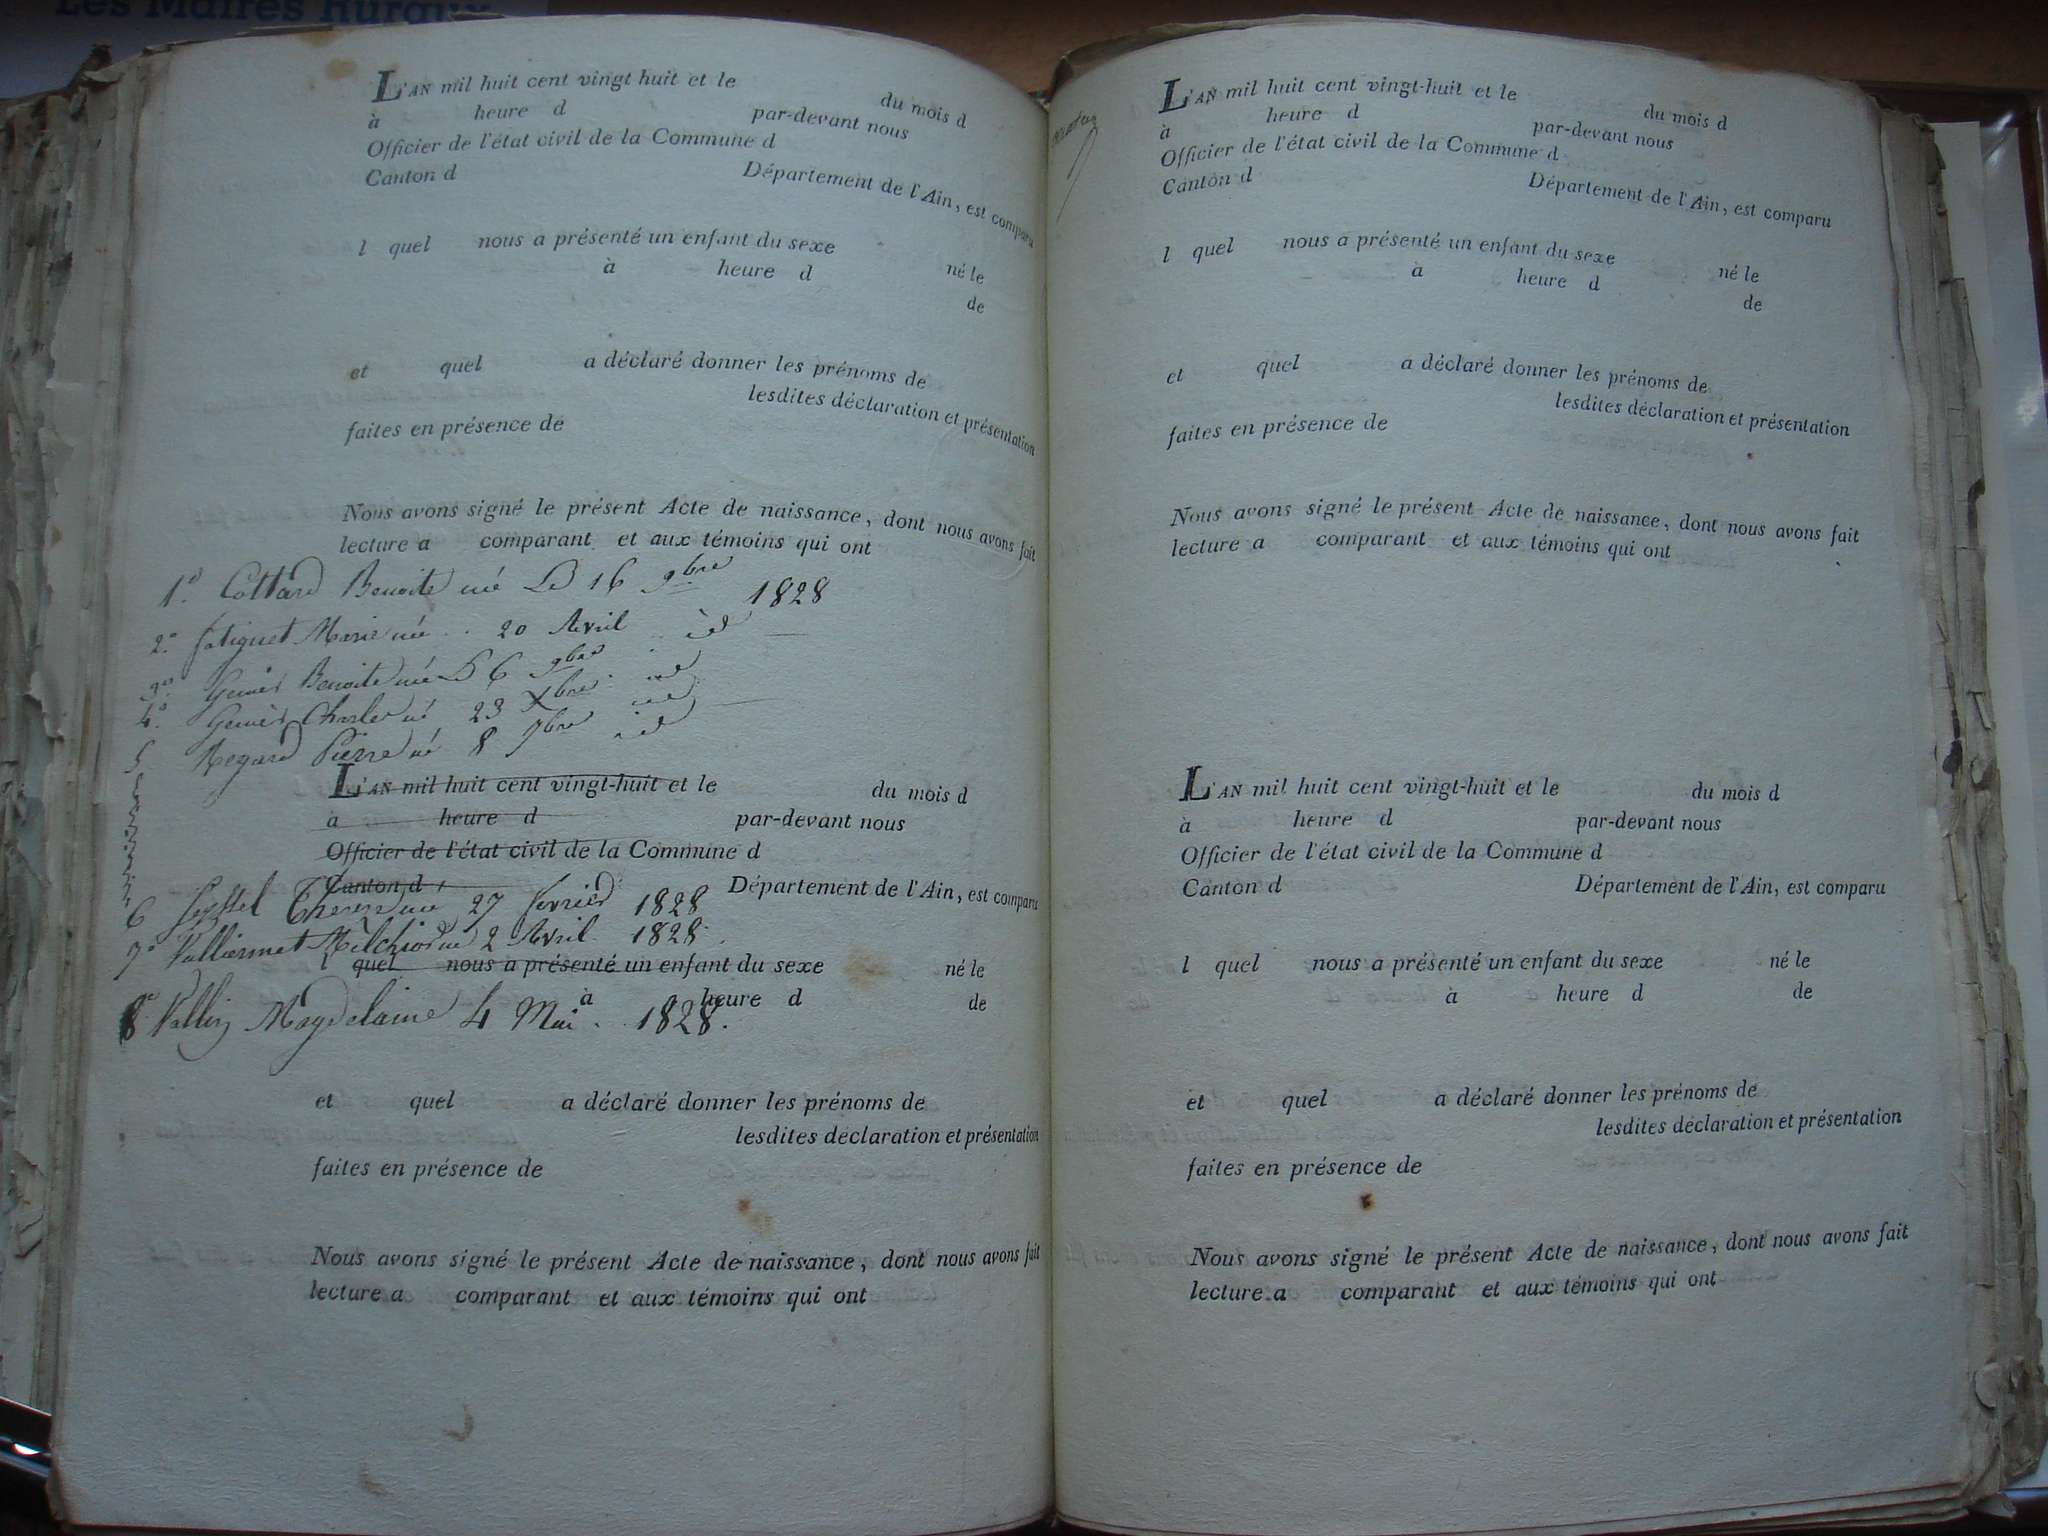 Les Maires Ruraux
L'AN mil huit cent vingt huit et le du mois d
à heure d par-devant nous
Officier de l'état civil de la Commune d
Canton d Département de l'Ain, est comparu
l quel nous a présenté un enfant du sexe né le
à heure d de
et quel a déclaré donner les prénoms de
lesdites déclaration et présentation
faites en présence de
Nous avons signé le présent Acte de naissance, dont nous avons fait
lecture a comparant et aux témoins qui ont
1° Cottard Benoite née Le 16 9bre 1828
2° fatiguet Marie née 20 Avril id
3° Benoite née Le 6 9bre id
4° Charles né 23 Xbre id
5 Regard Pierre né 8 7bre id
L'AN mil huit cent vingt-huit et le du mois d
à heure d par-devant nous
Officier de l'état civil de la Commune d
Canton d Département de l'Ain, est comparu
6 Seyssel née 27 fevrier 1828
7° Melchior né 2 Avril 1828
l quel nous a présenté un enfant du sexe né le
à heure d de
8° Vallin Magdelaine 4 Mai 1828.
et quel a déclaré donner les prénoms de
lesdites déclaration et présentation
faites en présence de
Nous avons signé le présent Acte de naissance, dont nous avons fait
lecture a comparant et aux témoins qui ont
L'AN mil huit cent vingt-huit et le du mois d
à heure d par-devant nous
Officier de l'état civil de la Commune d
Canton d Département de l'Ain, est comparu
l quel nous a présenté un enfant du sexe né le
à heure d de
et quel a déclaré donner les prénoms de
lesdites déclaration et présentation
faites en présence de
Nous avons signé le présent Acte de naissance, dont nous avons fait
lecture a comparant et aux témoins qui ont
L'AN mil huit cent vingt-huit et le du mois d
à heure d par-devant nous
Officier de l'état civil de la Commune d
Canton d Département de l'Ain, est comparu
l quel nous a présenté un enfant du sexe né le
à heure d de
et quel a déclaré donner les prénoms de
lesdites déclaration et présentation
faites en présence de
Nous avons signé le présent Acte de naissance, dont nous avons fait
lecture a comparant et aux témoins qui ont